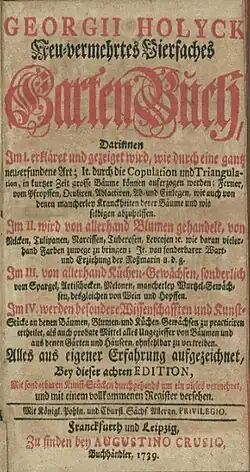 GEORGII HOLYCK
Neu-vermehrtes Vierfaches
Garten Buch,
Darinnen
Im I. erkläret und gezeiget wird, wie durch eine gantz
neu-erfundene Art; It. durch die Copulation und Triangula-
tion, in kurtzer Zeit grosse Bäume können auferzogen werden: Ferner,
vom Pfropffen, Oculiren, Ablactiren, Ab- und Einlegen, wie auch von
denen mancherley Kranckheiten derer Bäume und wie
selbigen abzuhelffen.
Im II. wird von allerhand Blumen gehandelt, von
Nelcken, Tulipanen, Narcissen, Tuberosen, Levcojen ꝛc. wie daran vieler-
hand Farben zuwege zu bringen; It. von sonderbarer Wart-
und Erziehung der Roßmarin u. d. g.
Im III. von allerhand Küchen-Gewächsen, sonderlich
von Spargel, Artischocken, Melonen, mancherley Wurtzel-Gewäch-
sen, desgleichen von Wein und Hopffen.
Im IV. werden besondere Wissenschafften und Kunst-
Stücke an denen Bäumen, Blumen- und Küchen-Gewächsen zu practiciren
ertheilet, als auch probate Mittel alles Ungeziefer von Bäumen und
aus denen Gärten und Häusern, ohnfehlbar zu vertreiben.
Alles aus eigener Erfahrung aufgezeichnet,
Bey dieser achten EDITION,
Mit sonderbaren Kunst-Stücken durchgehends um ein vieles vermehret,
und mit einem vollkommenen Register versehen.
Mit Königl. Pohln. und Churfl. Sächs. Allergn. PRIVILEGIO.
Franckfurth und Leipzig,
Zu finden bey AUGUSTINO CRUSIO,
Buchhändler, 1739.